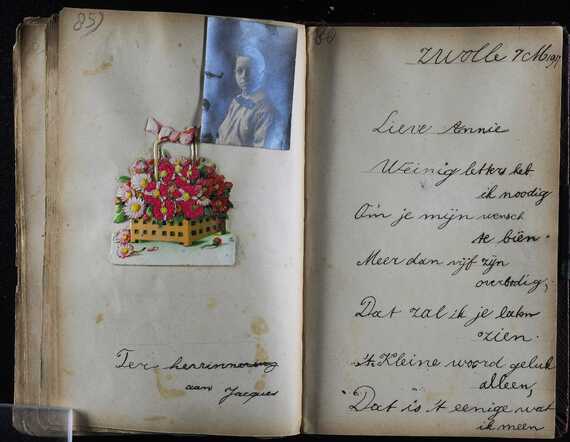 85)
Ter herrinnering
aan Jacques
86
Zwolle 7 M 1917
Lieve Annie
Weinig letters heb
ik noodig
Om je mijn wensch
te biên.
Meer dan vijf zijn
overbodig,
Dat zal ik je laten
zien.
't Kleine woord geluk
alleen,
Dat is 't eenige wat
ik meen